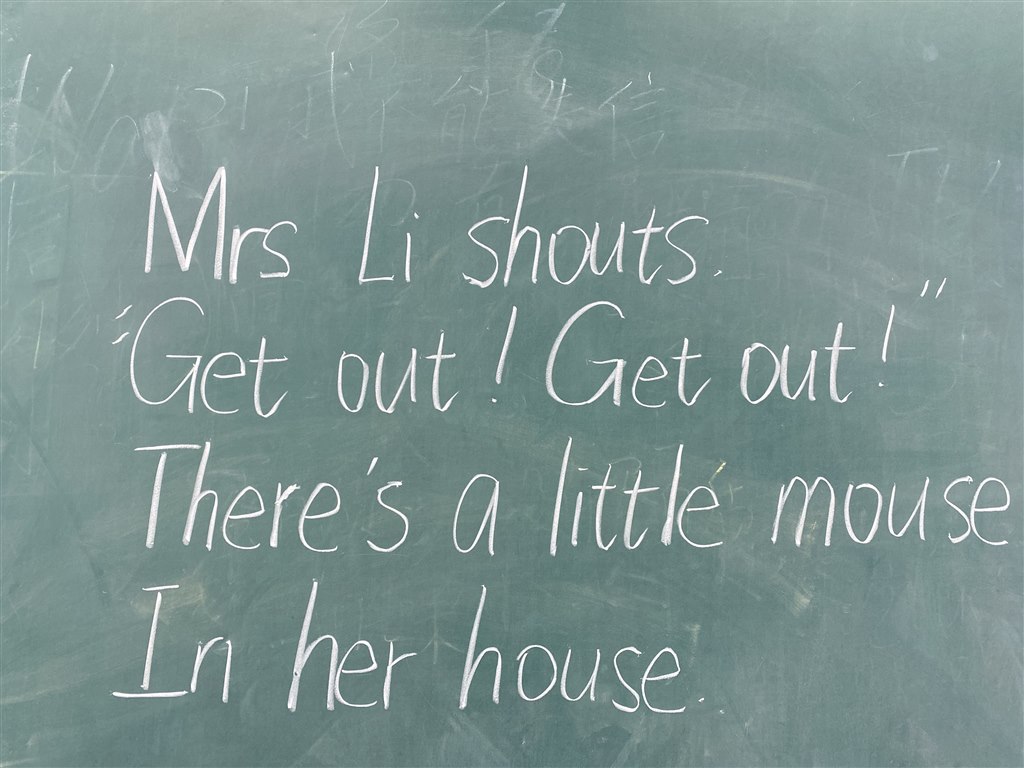 Mrs Li shouts.
"Get out! Get out!"
There's a little mouse
In her house.